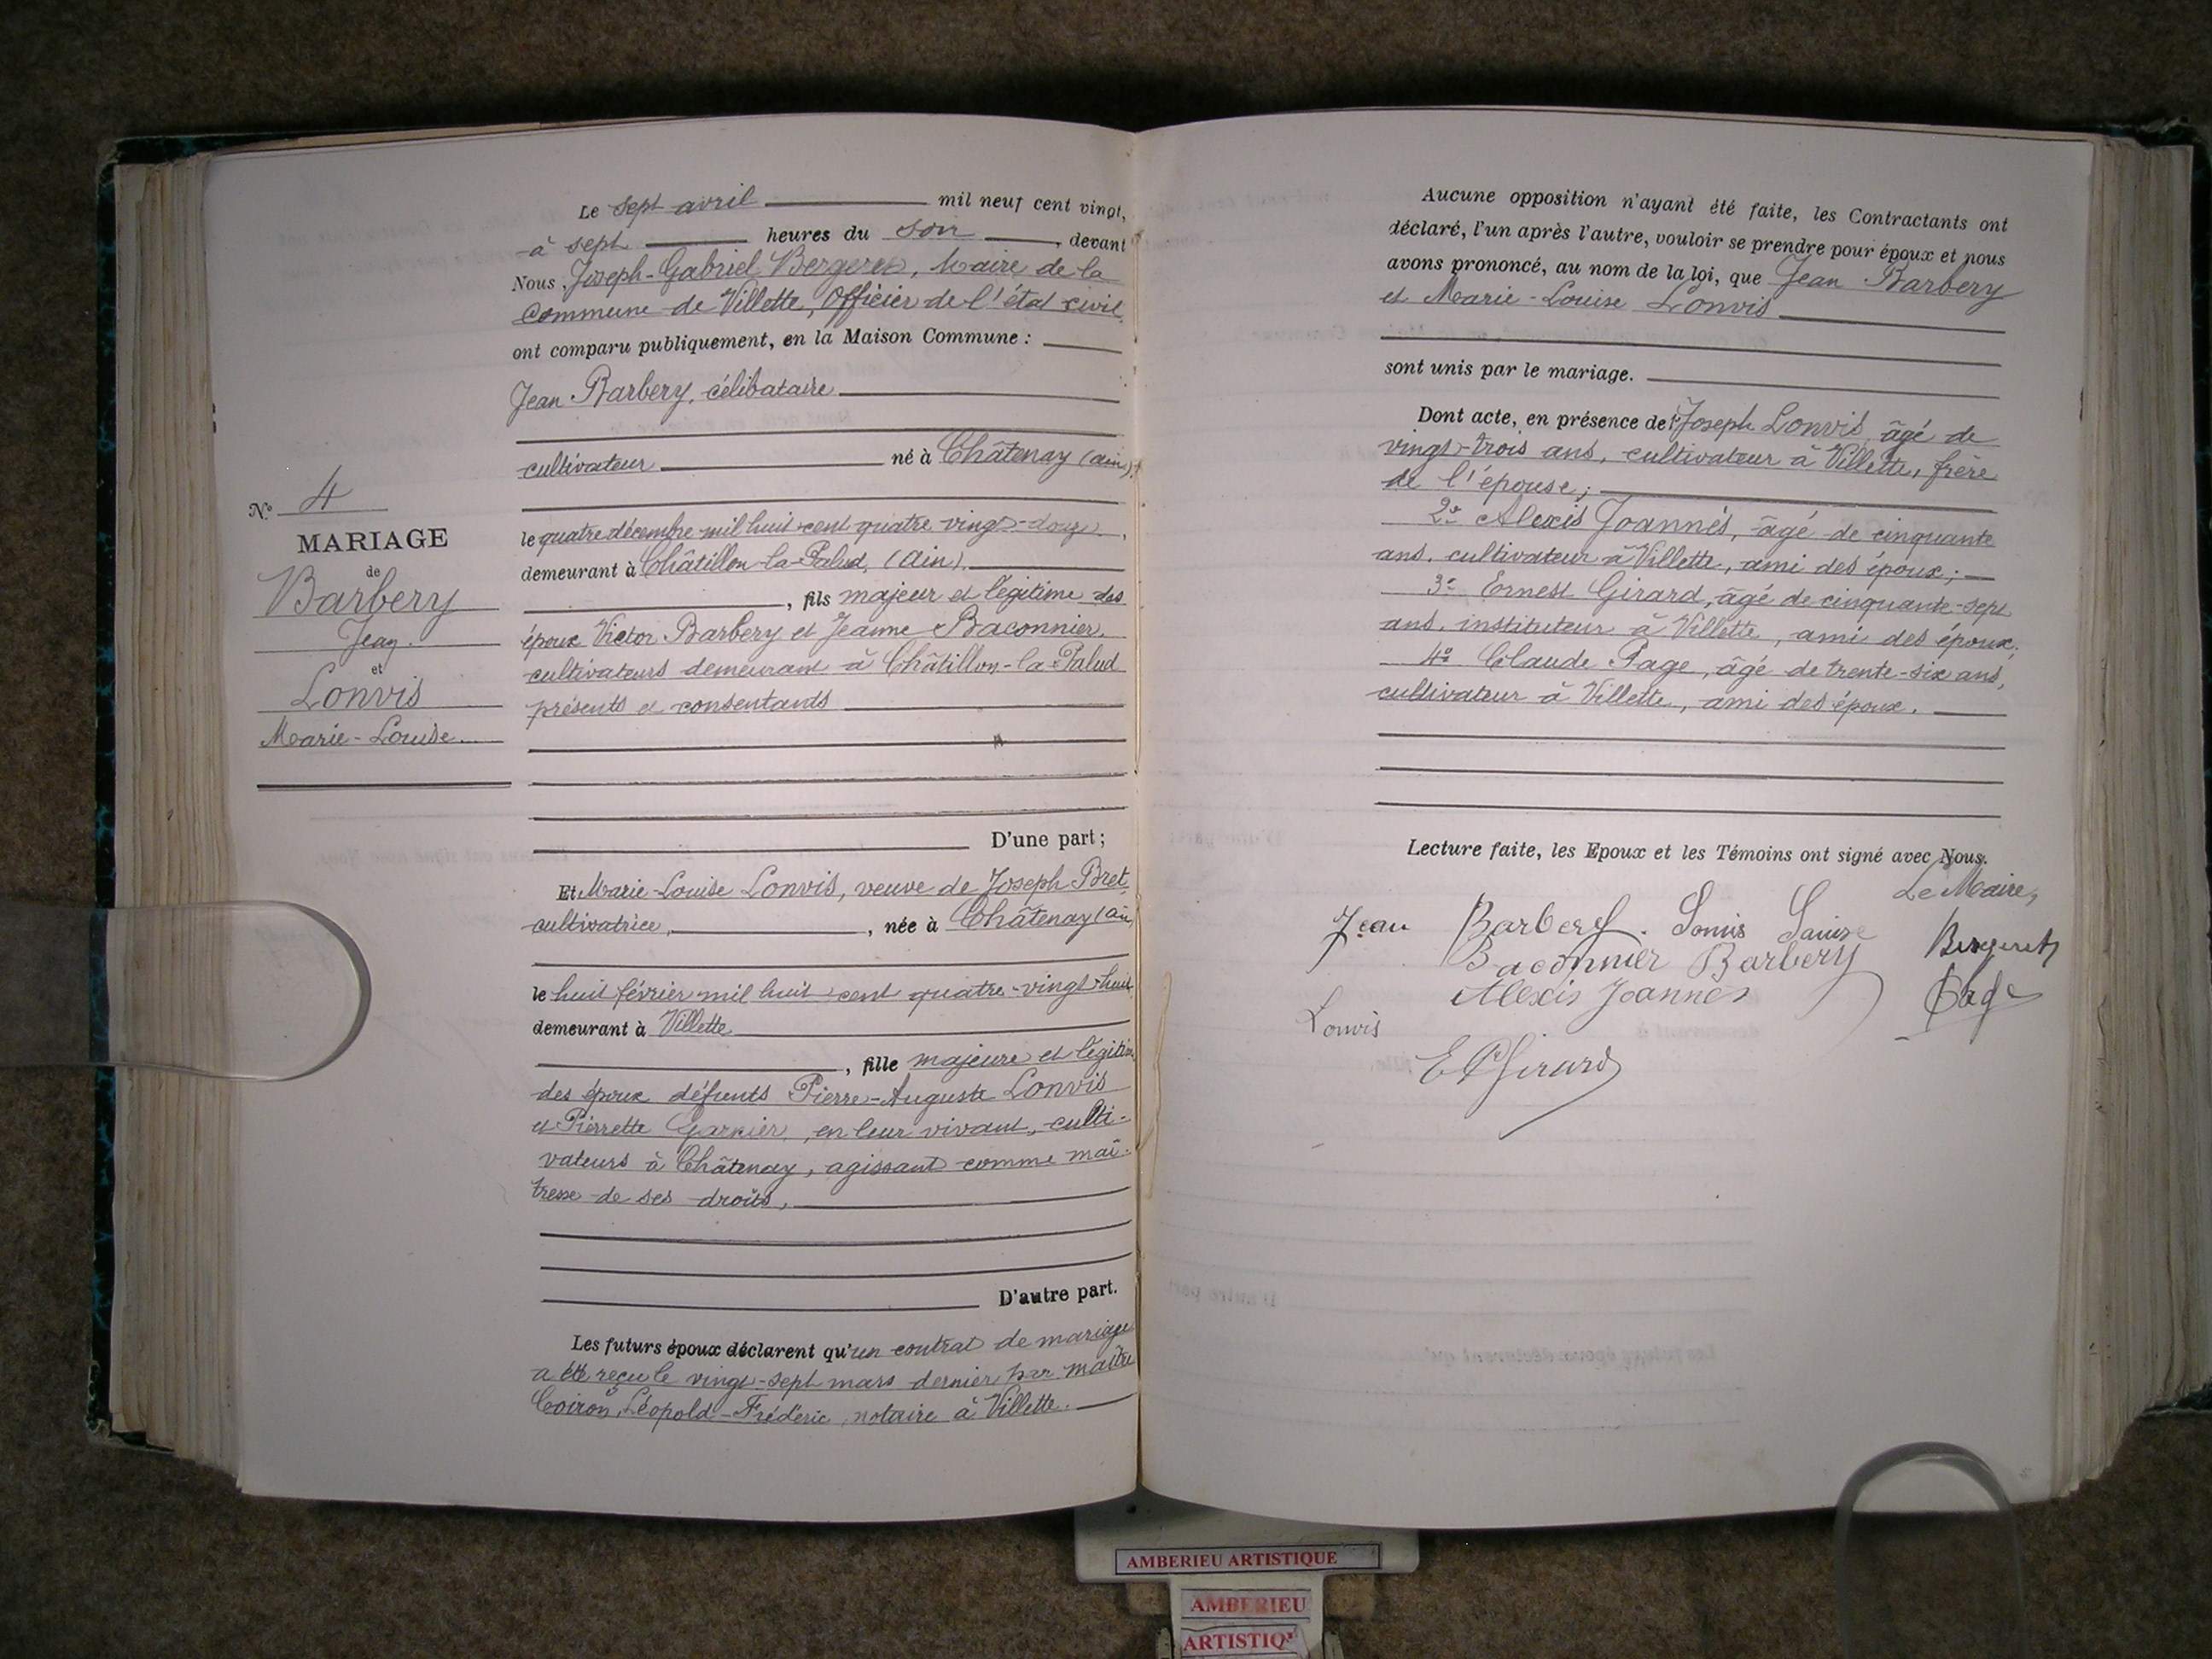 N° 4
MARIAGE
de
Barbery
Jean.
et
Lonvis
Marie-Louise
Le sept avril mil neuf cent vingt,
à sept heures du soir, devant
Nous, Joseph-Gabriel Bergeret, Maire de la
Commune de Villette, Officier de l'état civil
ont comparu publiquement, en la Maison Commune :
Jean Barbery, célibataire
cultivateur né à Châtenay (Ain),
le quatre décembre mil huit cent quatre vingt-douze,
demeurant à Châtillon-la-Palud, (Ain).
, fils majeur et légitime des
époux Victor Barbery et Jeanne Baconnier,
cultivateurs demeurant à Châtillon-la-Palud
présents et consentants
D'une part ;
Et Marie-Louise Lonvis, veuve de Joseph Bret
cultivatrice, née à Châtenay (Ain
le huit février mil huit cent quatre-vingt-huit
demeurant à Villette
, fille majeure et légitime
des époux défunts Pierre-Auguste Lonvis
et Pierrette Garnier, en leur vivant, culti-
vateurs à Châtenay, agissant comme maî-
tresse de ses droits,
D'autre part.
Les futurs époux déclarent qu'un contrat de mariage
a été reçu le vingt-sept mars dernier par maître
Coiron, Léopold-Frédéric, notaire à Villette.
Aucune opposition n'ayant été faite, les Contractants ont
déclaré, l'un après l'autre, vouloir se prendre pour époux et nous
avons prononcé, au nom de la loi, que Jean Barbery
et Marie-Louise Lonvis
sont unis par le mariage.
Dont acte, en présence de 1° Joseph Lonvis, âgé de
vingt-trois ans, cultivateur à Villette, frère
de l'épouse ;
2° Alexis Joannès, âgé de cinquante
ans, cultivateur à Villette, ami des époux ;
3° Ernest Girard, âgé de cinquante-sept
ans, instituteur à Villette, ami des époux ;
4° Claude Page, âgé de trente-six ans,
cultivateur à Villette, ami des époux.
Lecture faite, les Epoux et les Témoins ont signé avec Nous.
Le Maire,
Jean Barbery. Lonvis Louise Bergeret
Baconnier Barbery
Alexis Joannès Page
Lonvis
Girard
AMBERIEU ARTISTIQUE
AMBERIEU
ARTISTIQ